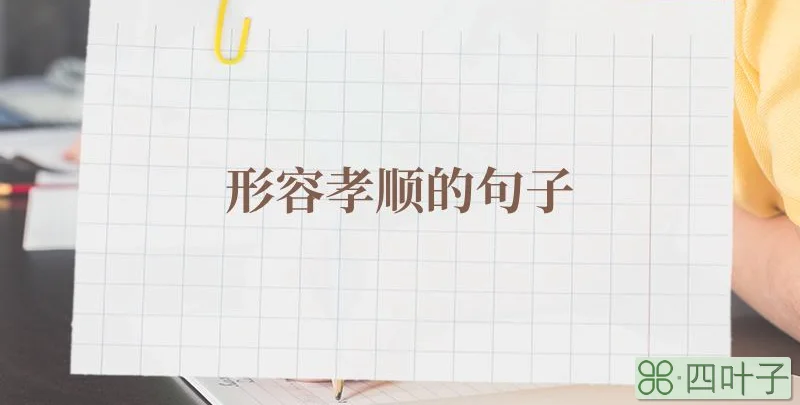 形容孝顺的句子
四叶子